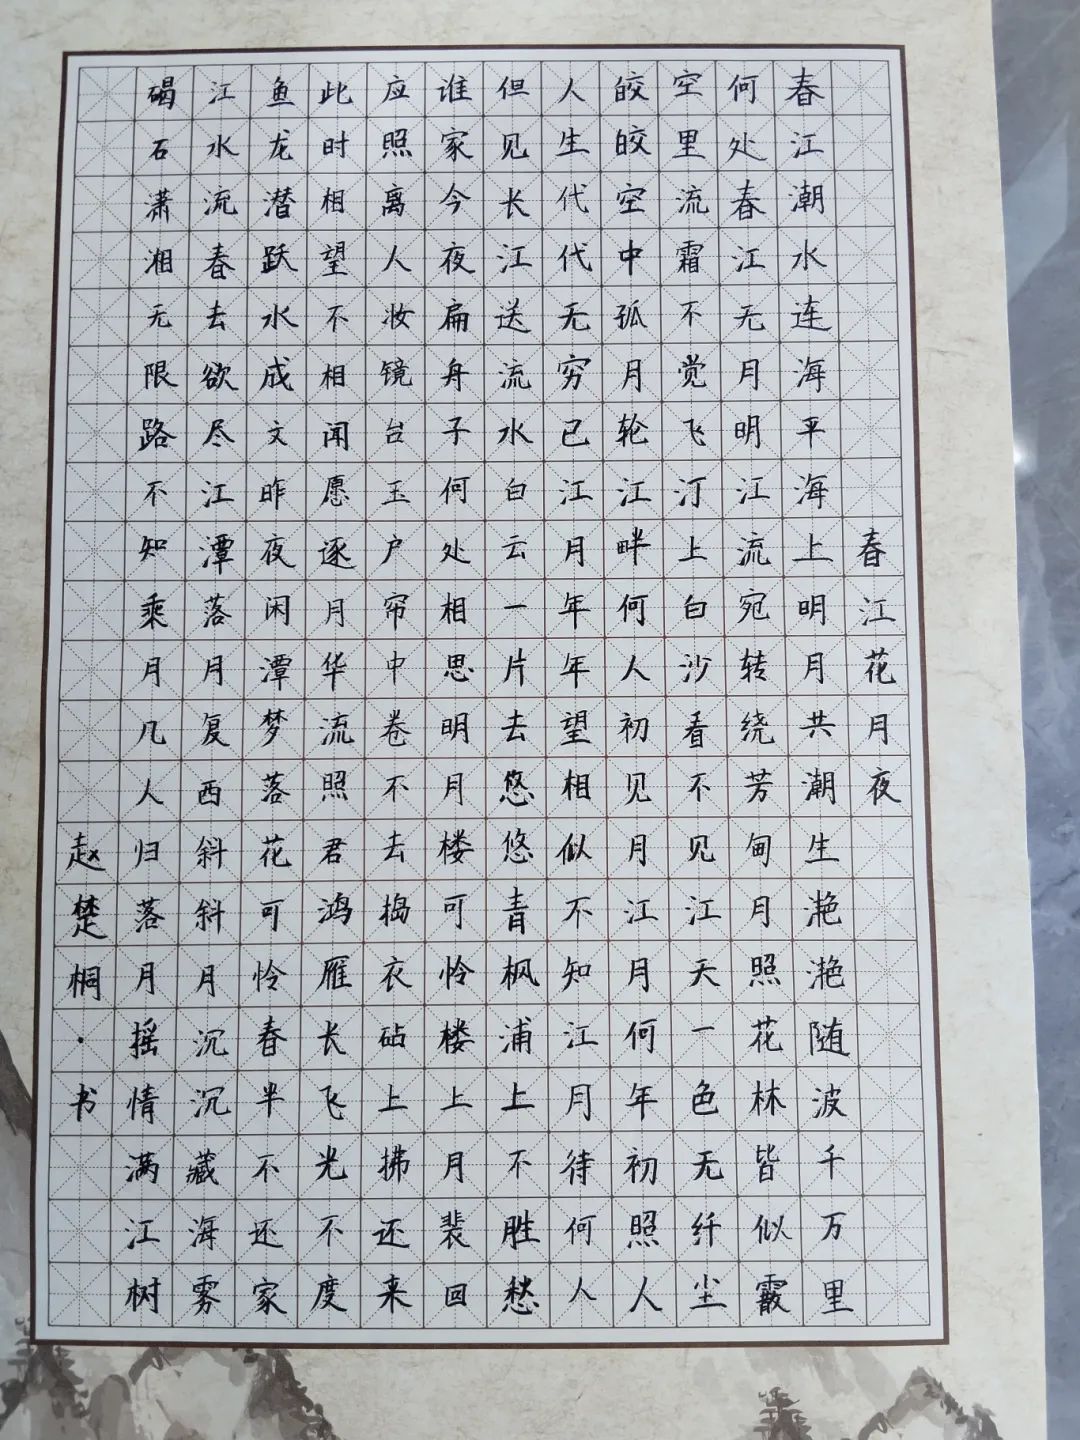 春江花月夜
春江潮水连海平海上明月共潮生滟滟随波千万里
何处春江无月明江流宛转绕芳甸月照花林皆似霰
空里流霜不觉飞汀上白沙看不见江天一色无纤尘
皎皎空中孤月轮江畔何人初见月江月何年初照人
人生代代无穷已江月年年望相似不知江月待何人
但见长江送流水白云一片去悠悠青枫浦上不胜愁
谁家今夜扁舟子何处相思明月楼可怜楼上月裴回
应照离人妆镜台玉户帘中卷不去捣衣砧上拂还来
此时相望不相闻愿逐月华流照君鸿雁长飞光不度
鱼龙潜跃水成文昨夜闲潭梦落花可怜春半不还家
江水流春去欲尽江潭落月复西斜斜月沉沉藏海雾
碣石潇湘无限路不知乘月几人归落月摇情满江树
赵楚桐·书